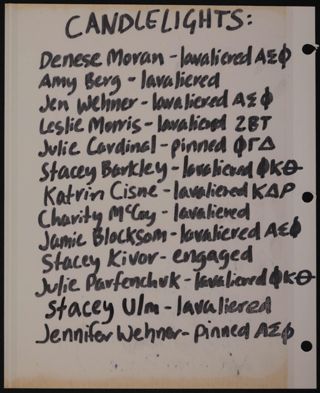 CANDLELIGHTS:
Denese Moran - lavaliered ΑΣΦ
Amy Berg - lavaliered
Jen Wehner - lavaliered ΑΣΦ
Leslie Morris - lavaliered ZBT
Julie Cardinal - pinned ΦΓΔ
Stacey Barkley - lavaliered ΦΚΘ
Katrin Cisne - lavaliered ΚΔΡ
Charity McCoy - lavaliered
Jamie Blocksom - lavaliered ΑΣΦ
Stacey Kivor - engaged
Julie Parfenchuk - lavaliered ΦΚΘ
Stacey Ulm - lavaliered
Jennifer Wehner - pinned ΑΣΦ